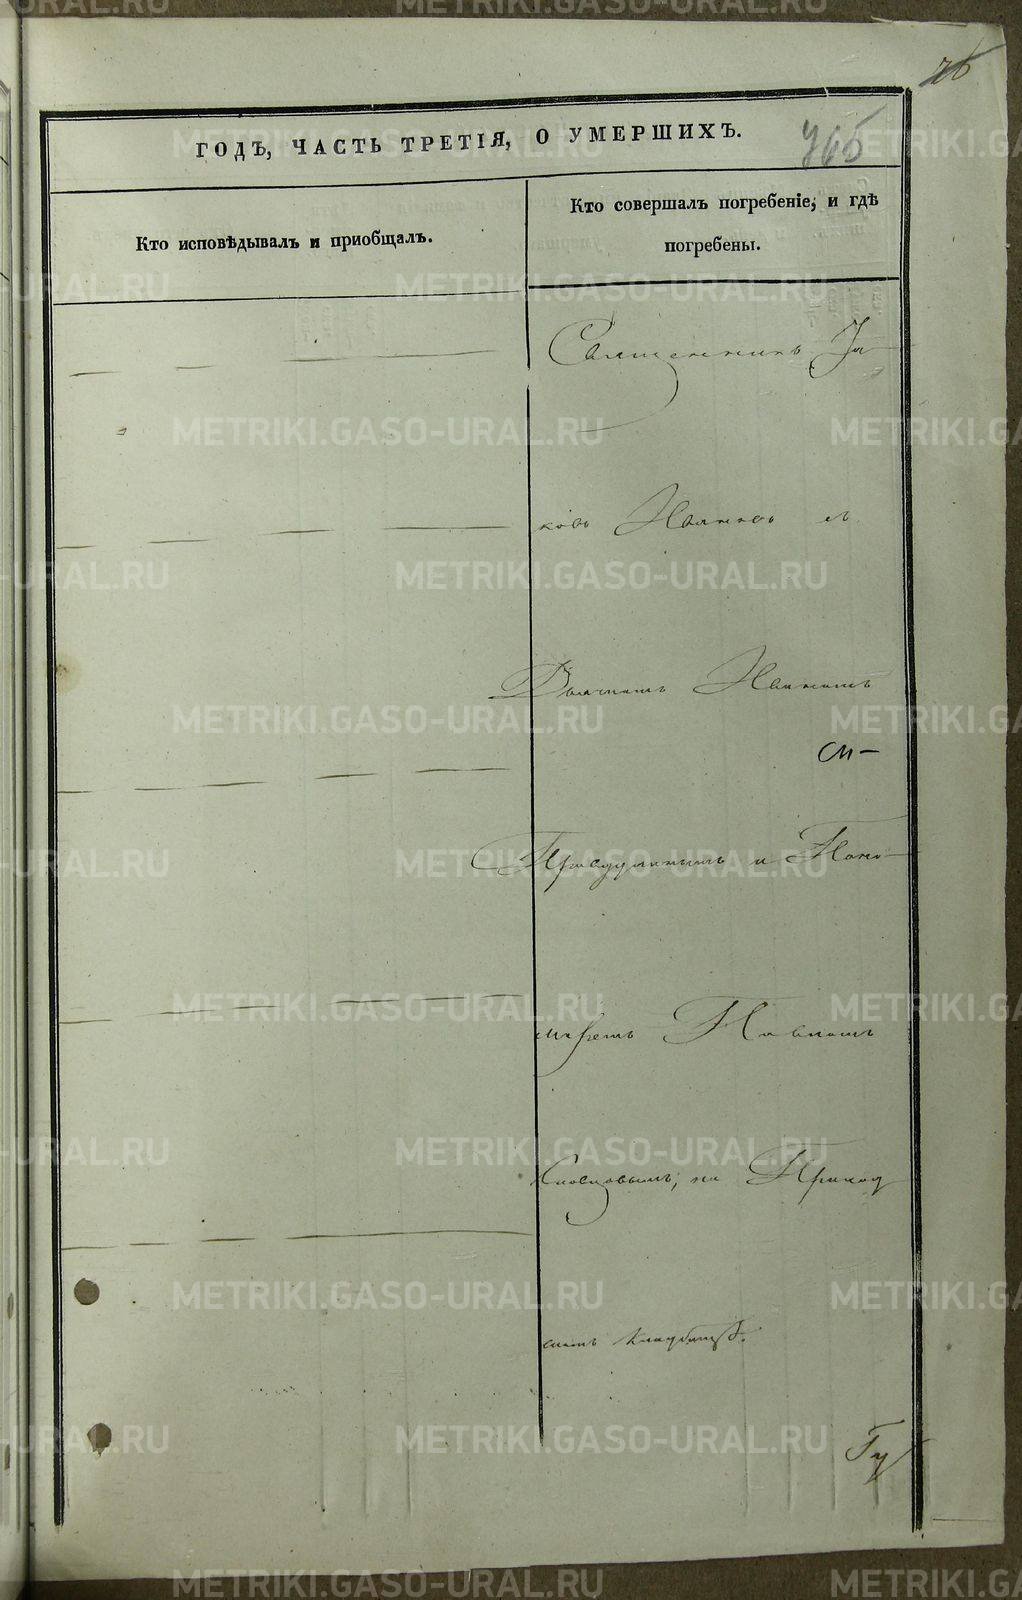 76
765
ГОДЪ, ЧАСТЬ ТРЕТІЯ, О УМЕРШИХЪ.
Кто исповѣдывалъ и приобщалъ.
Кто совершалъ погребеніе, и гдѣ
погребены.
Священникъ Іа-
ковъ Ивановъ съ
Дьячкомъ Иваномъ
См-
и Поно-
маремъ Павломъ
на Приход
скомъ кладбищѣ.
METRIKI.GASO-URAL.RU